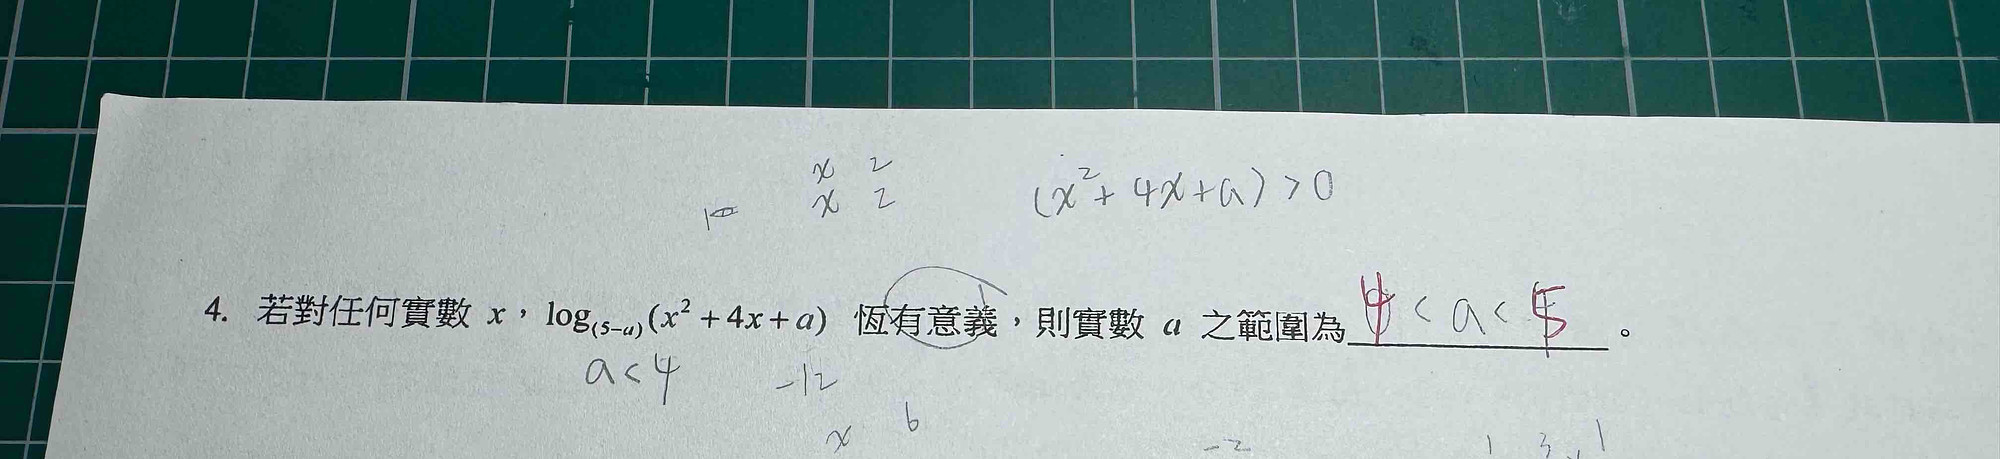 x 2
x 2
(x²+4x+a)>0
4. 若對任何實數 x，log₍₅₋ₐ₎(x²+4x+a) 恆有意義，則實數 a 之範圍為 4<a<5 。
a<4
-12
x 6
-2 1 3 1